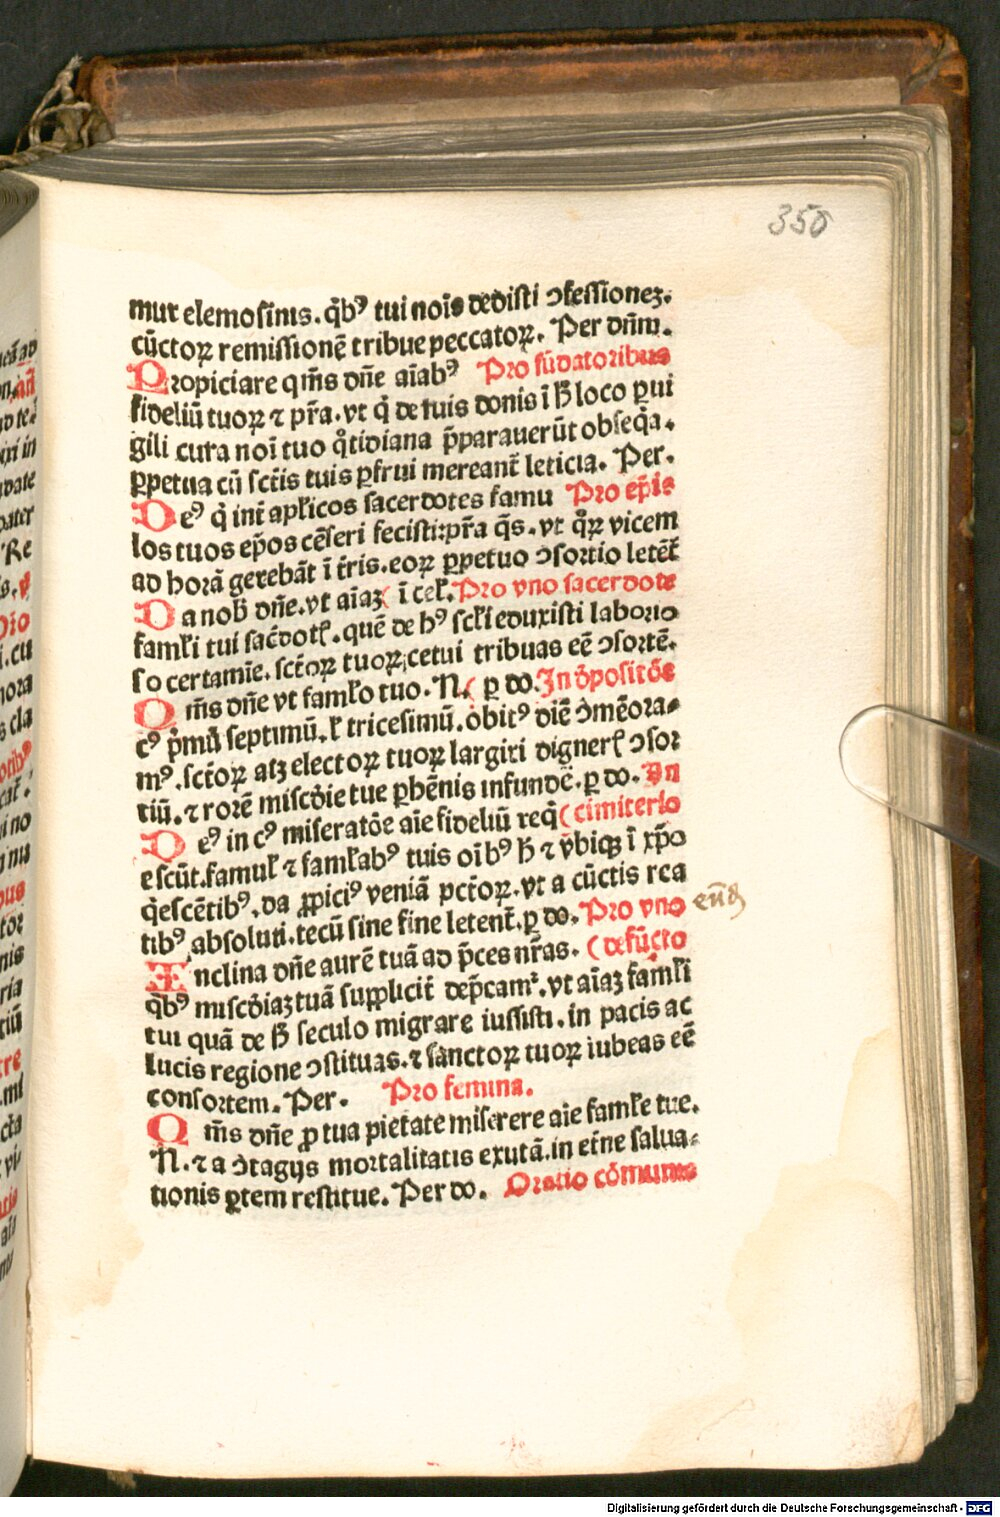 350
mur elemosinis. q̃bꝰ tui noı̄s dedisti ↄfessioneꝫ.
cūctoꝝ remissionē tribue peccatoꝝ. Per dn̄m.
Propiciare q̃ms dn̄e aı̄abꝰ Pro fūdatoribus
fideliū tuoꝝ ⁊ pr̄a. vt q̇ de tuis donis ī ħ loco ꝑui
gili cura noı̄ tuo q̊tidiana p̄parauerūt obseq̃a.
ꝑpetua cū sct̄is tuis ꝑfrui mereant̄ leticia. Per.
Deꝰ q̇ int̄ apl̄icos sacerdotes famu Pro ep̄is
los tuos ep̄os cēseri fecisti: pr̄a q̄s. vt q̊ꝝ vicem
ad horā gerebāt ī tr̄is. eoꝝ ꝑpetuo ↄsortio letēt̄
Da nob̄ dn̄e. vt aı̄aꝫ ( ī cel̄. Pro vno sacerdote
faml̄i tui sac̄dotꝭ. quē de hꝰ scl̄i eduxisti laborio
so certamīe. sct̄oꝝ tuoꝝ cetui tribuas eē ↄsortē.
Q̄ms dn̄e vt faml̄o tuo. N. ( ꝑ do. In d̓positōe
cꝰ p̄mū septimū. l̄ tricesimū. obitꝰ diē ↄ̄mēora-
mꝰ. sct̄oꝝ atꝫ electoꝝ tuoꝝ largiri dignerꝭ ↄsor
tiū. ⁊ rorē misc̄die tue ꝑhēnis infundē. ꝑ do. In
Deꝰ in cꝰ miseratōe aı̄e fideliū req̇ ( cimiterio
escūt. famul̄ ⁊ faml̄abꝰ tuis oı̄bꝰ ħ ⁊ vbiqꝫ ī xp̄o
q̇escētibꝰ. da ꝓpiciꝰ veniā pct̄oꝝ. vt a cūctis rea
tibꝰ absoluti. tecū sine fine letent̄. ꝑ do. Pro vno
Inclina dn̄e aurē tuā ad p̄ces nr̄as. ( defūcto
q̇bꝰ misc̄diaꝫ tuā supplicit̄ dep̄camʳ. vt aı̄aꝫ faml̄i
tui quā de ħ seculo migrare iussisti. in pacis ac
lucis regione ↄstituas. ⁊ sanctoꝝ tuoꝝ iubeas eē
consortem. Per. Pro femina.
Q̄ms dn̄e ꝓ tua pietate miserere aı̄e faml̄e tue.
N. ⁊ a ↄ̄tagijs mortalitatis exutā. in et̄ne salua-
tionis ꝑtem restitue. Per do. Oratio cōmunis
Digitalisierung gefördert durch die Deutsche Forschungsgemeinschaft - DFG